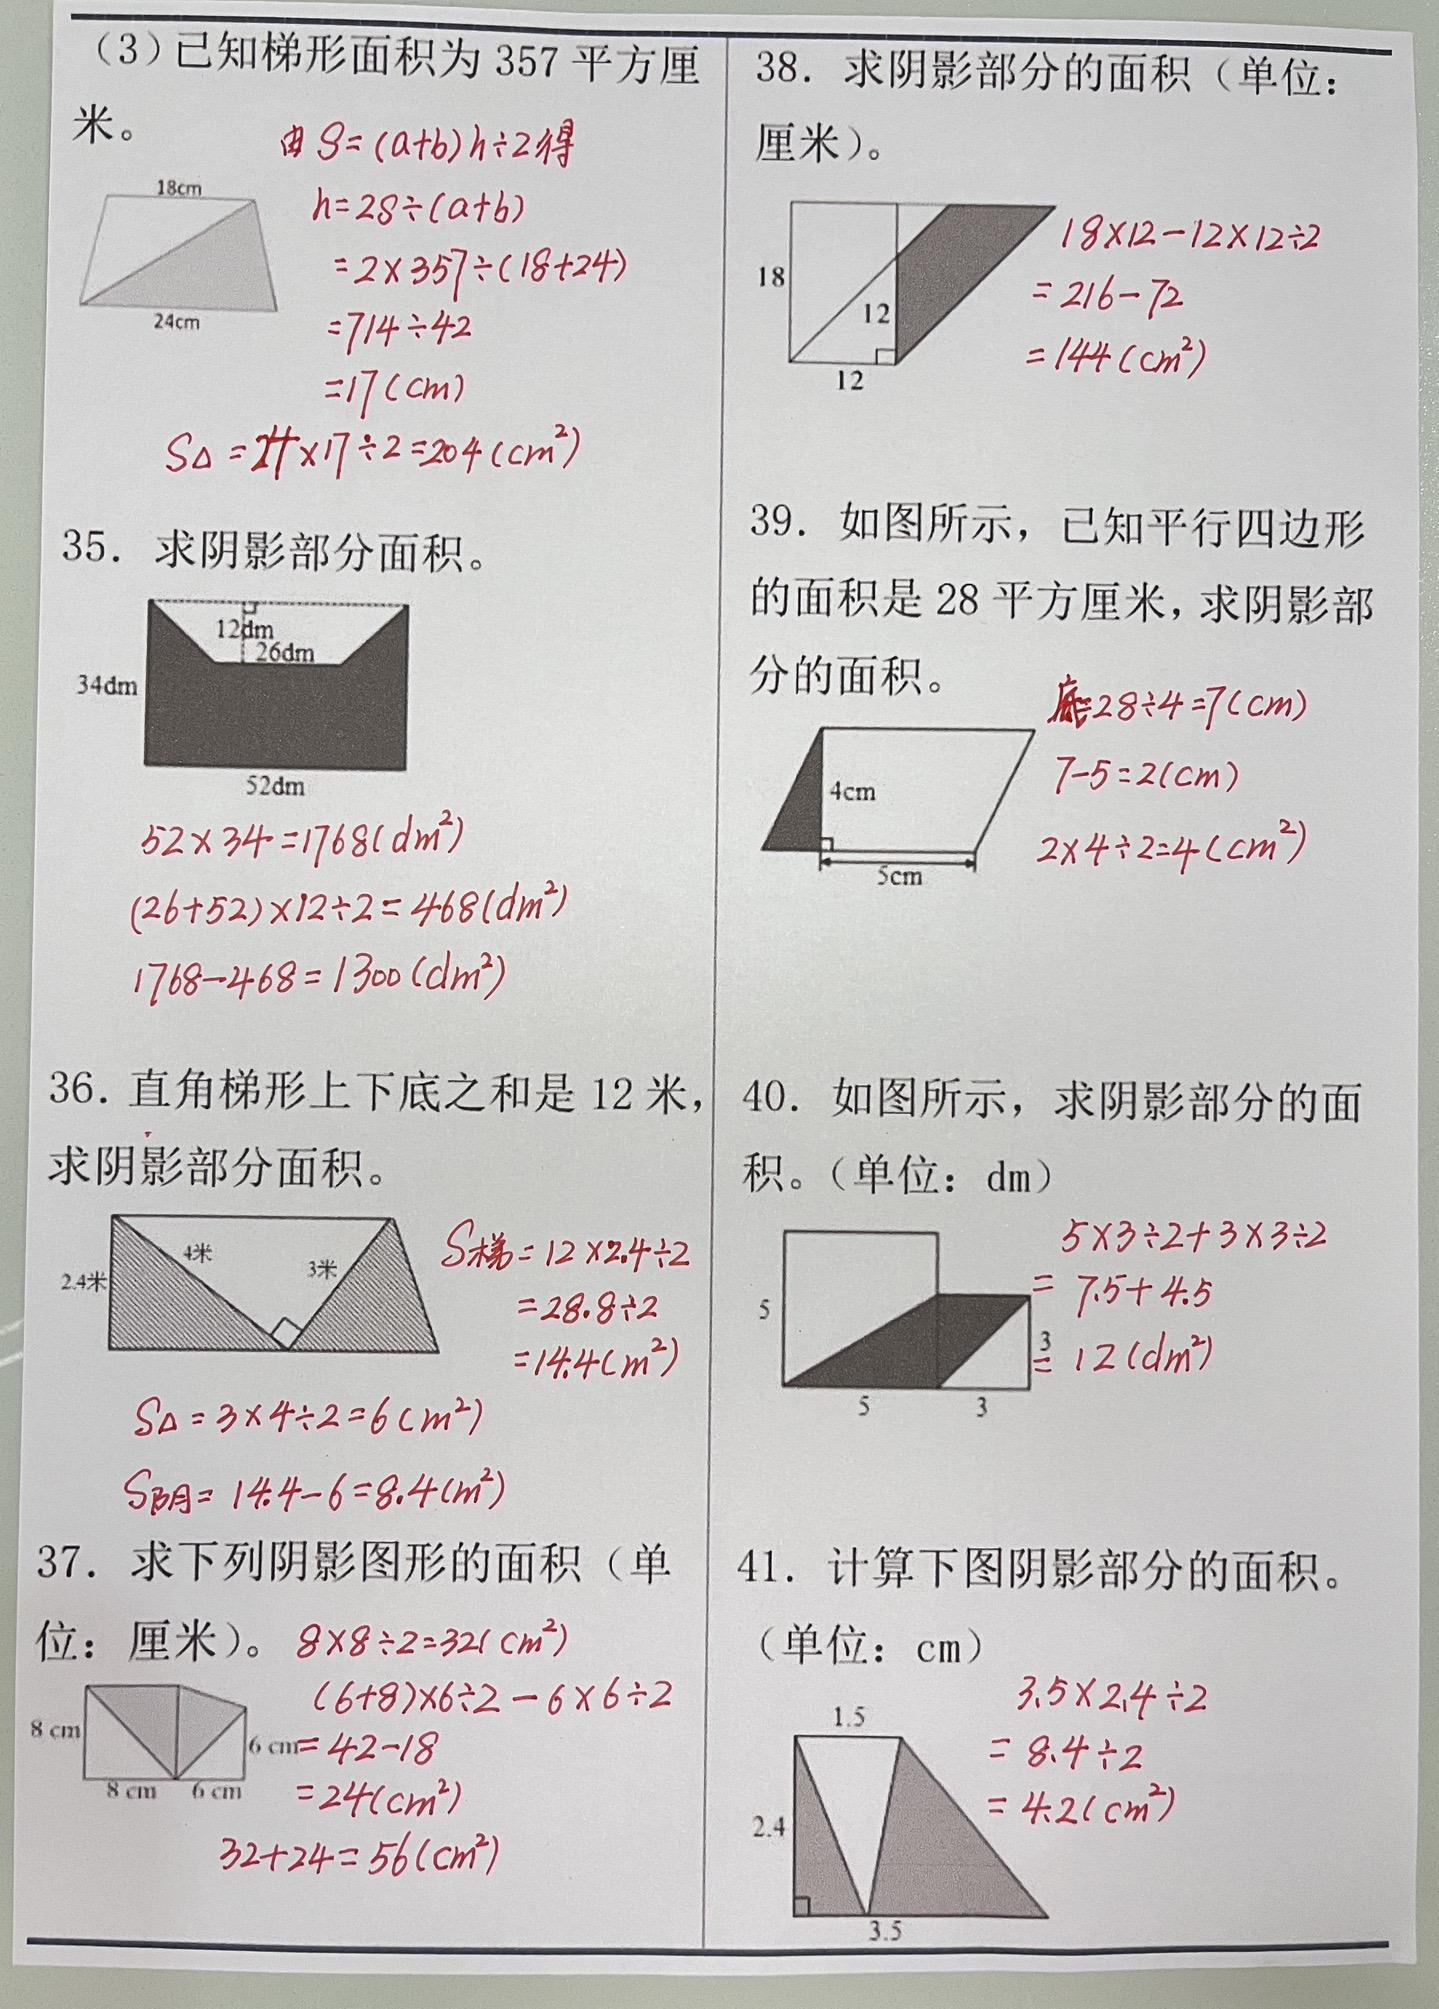 （3）已知梯形面积为 357 平方厘
米。
由 S=(a+b)h÷2得
18cm
h=2S÷(a+b)
=2×357÷(18+24)
24cm
=714÷42
=17(cm)
S△=24×17÷2=204(cm²)
35. 求阴影部分面积。
12dm
26dm
34dm
52dm
52×34=1768(dm²)
(26+52)×12÷2=468(dm²)
1768-468=1300(dm²)
36. 直角梯形上下底之和是 12 米，
求阴影部分面积。
4米
3米
2.4米
S梯=12×2.4÷2
=28.8÷2
=14.4(m²)
S△=3×4÷2=6(m²)
S阴=14.4-6=8.4(m²)
37. 求下列阴影图形的面积（单
位：厘米）。
8×8÷2=32(cm²)
(6+8)×6÷2-6×6÷2
8 cm
6 cm
=42-18
8 cm
6 cm
=24(cm²)
32+24=56(cm²)
38. 求阴影部分的面积（单位：
厘米）。
18×12-12×12÷2
18
=216-72
12
=144(cm²)
12
39. 如图所示，已知平行四边形
的面积是 28 平方厘米，求阴影部
分的面积。
底=28÷4=7(cm)
7-5=2(cm)
4cm
2×4÷2=4(cm²)
5cm
40. 如图所示，求阴影部分的面
积。（单位：dm）
5×3÷2+3×3÷2
= 7.5+4.5
5
3
= 12(dm²)
5
3
41. 计算下图阴影部分的面积。
（单位：cm）
3.5×2.4÷2
1.5
= 8.4÷2
= 4.2(cm²)
2.4
3.5